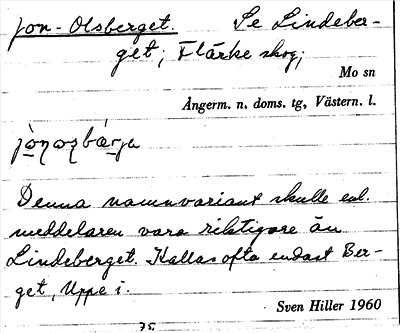 Jon-Olsberget. Se Lindeber-
get; Flärke skog;
Mo sn
Ångerm. n. doms. tg, Västern. l.
Denna namnvariant skulle enl.
meddelaren vara riktigare än
Lindeberget. Kallas ofta endast Ber-
get, Uppe i.
Sven Hiller 1960